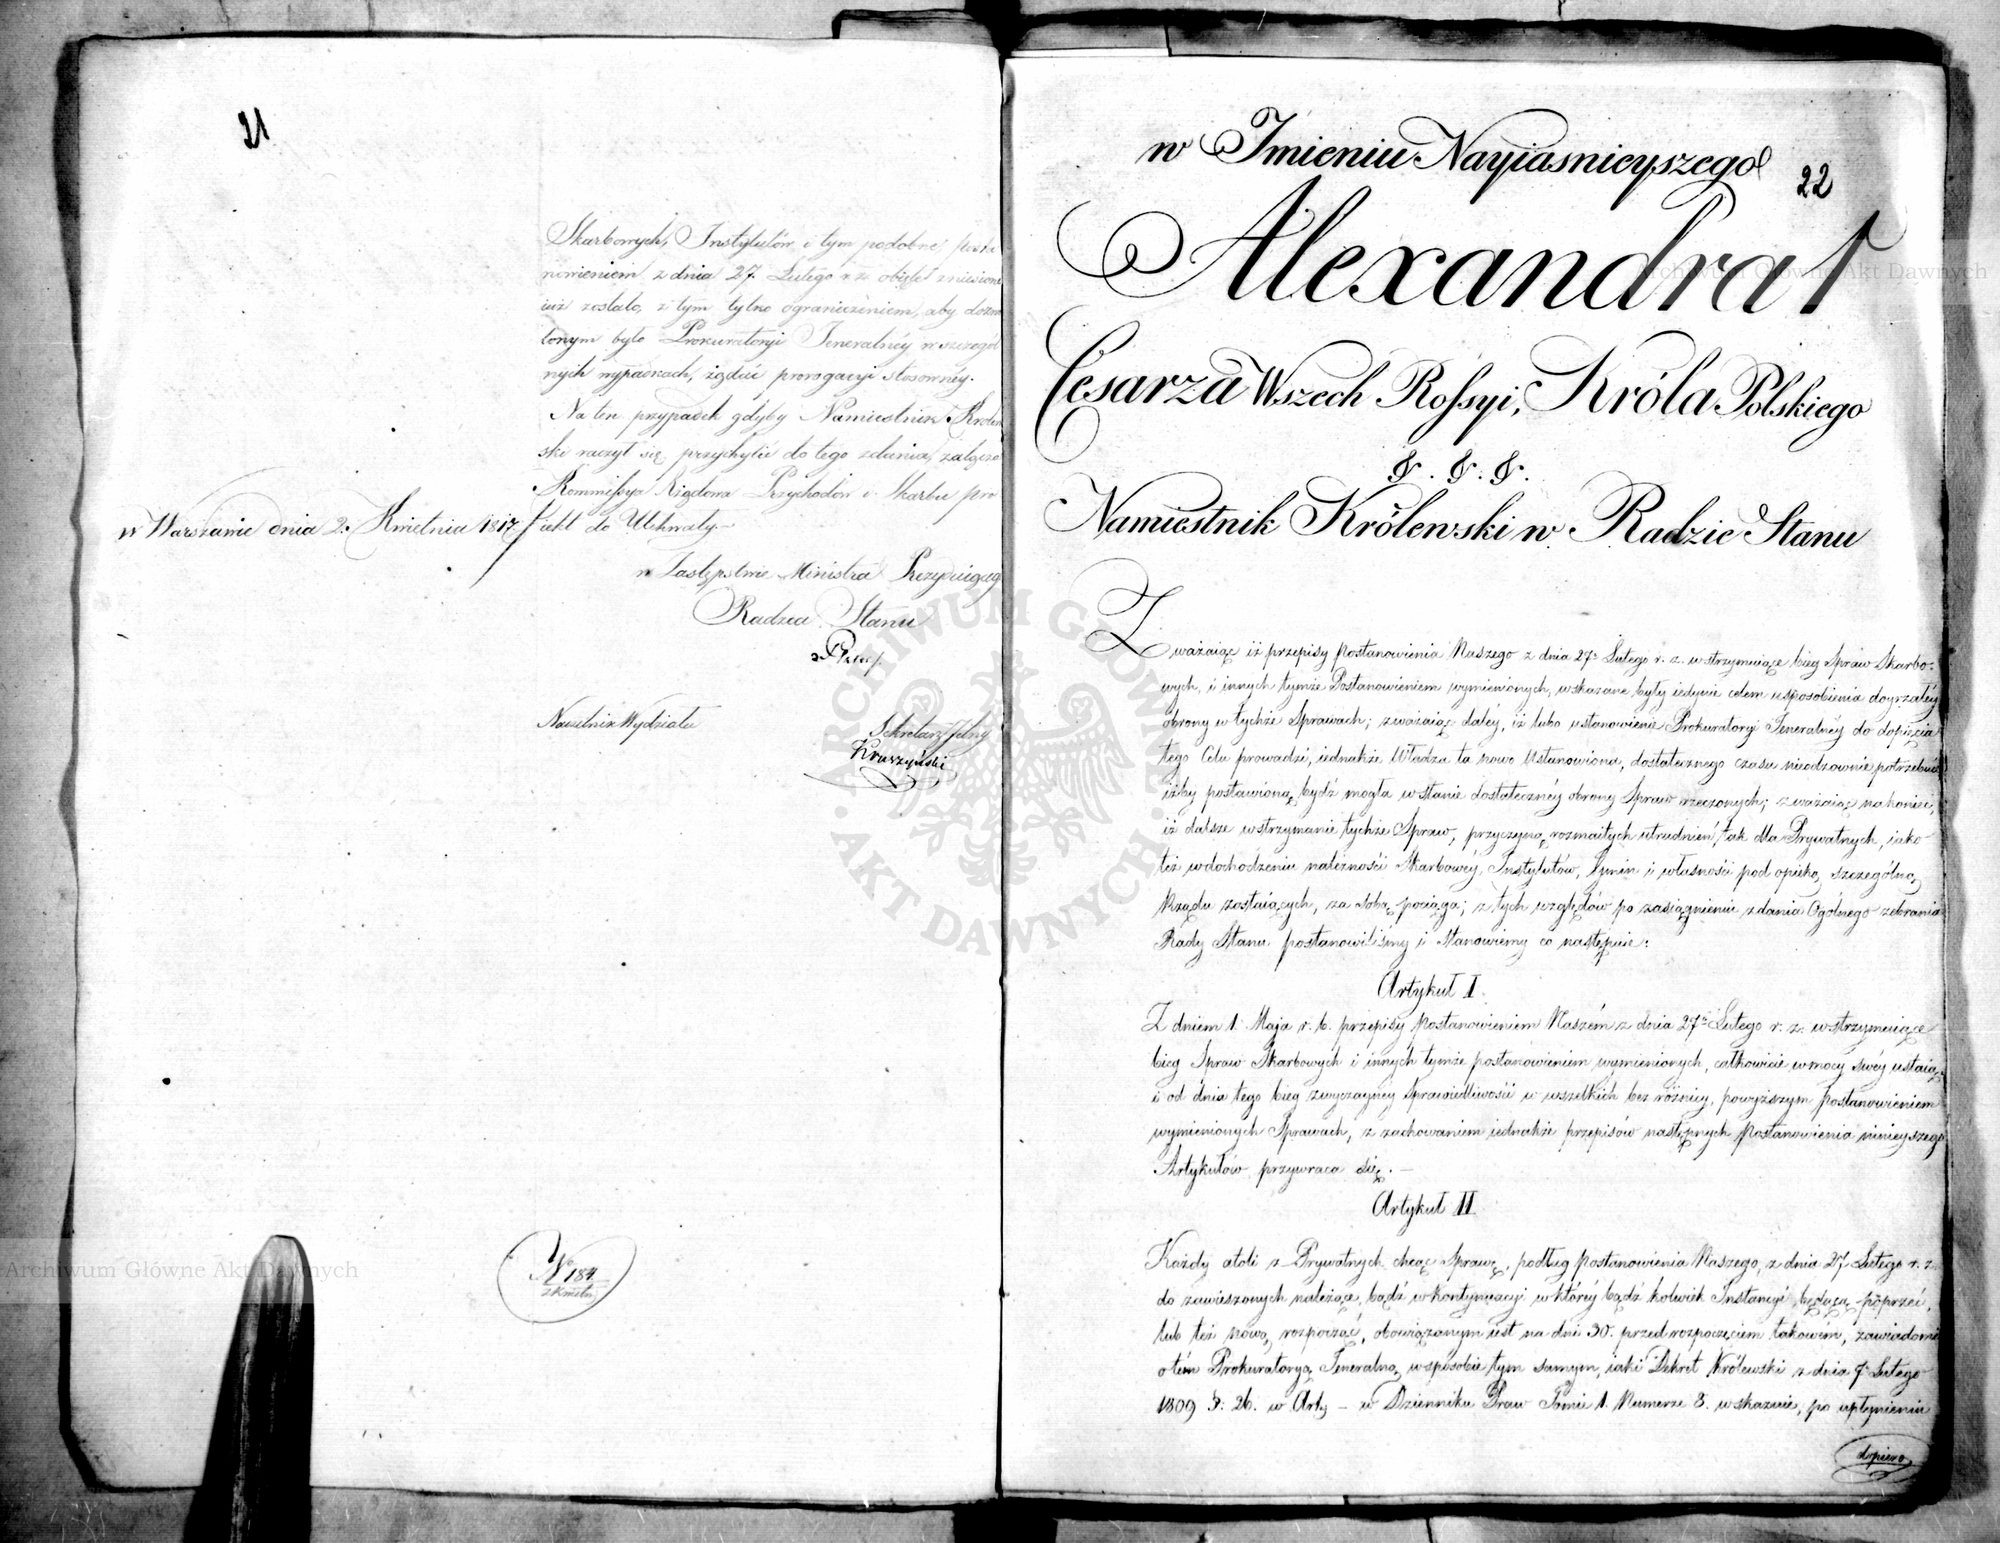 21
Skarbowych, Instytutów i tym podobne, posta-
nowieniem z dnia 27. Lutego r. z. obięte zniesione
iuż zostało, z tym tylko ograniczeniem, aby dozwo
lonym było Prokuratoryi Jeneralnéy w szczegól
nych wypadkach, żądać prorogacyi stosownéy.
Na ten przypadek gdyby Namiestnik Królew
ski raczył się przychylić do tego zdania, załącza
Kommissya Rządowa Przychodów i Skarbu pro
iekt do Uchwały.
w Warszawie dnia 2. Kwietnia 1817 r.
w Zastępstwie Ministra Prezyduiącego
Radzca Stanu
Naczelnik Wydziału
Sekretarz Jlny
Kruszyński
N 184
z Kwietn.
22
w Imieniu Nayiasnieyszego
Alexandra I
Cesarza Wszech Rossyi, Króla Polskiego
&. &. &.
Namiestnik Królewski w Radzie Stanu
Zważaiąc iż przepisy Postanowienia Naszego z dnia 27. Lutego r. z. wstrzymuiące bieg Spraw Skarbo-
wych, i innych tymże Postanowieniem wymienionych, wskazane były iedynie celem usposobienia doyrzałéy
obrony w tychże Sprawach; zważaiąc daléy, iż lubo ustanowienie Prokuratoryi Jeneralnéy do dopięcia
tego Celu prowadzi, iednakże Władza ta nowo Ustanowiona, dostatecznego czasu nieodzownie potrzebuie
iżby postawioną bydź mogła w stanie dostatecznéy obrony Spraw rzeczonych; zważaiąc nakoniec,
iż dalsze wstrzymanie tychże Spraw, przyczyną rozmaitych utrudnień, tak dla Prywatnych, iako
też w dochodzeniu należności Skarbowéy, Instytutów, Gmin i własności pod opieką szczególną
Rządu zostaiących, za sobą pociąga; z tych względów po zasiągnieniu zdania Ogólnego zebrania
Rady Stanu postanowiliśmy i Stanowiemy co następuie:
Artykuł I
Z dniem 1. Maja r. b. przepisy Postanowieniem Naszém z dnia 27. Lutego r. z. wstrzymuiące
bieg Spraw Skarbowych i innych tymże postanowieniem wymienionych, całkowicie w mocy swéy ustaią
i od dnia tego bieg zwyczaynéy Sprawiedliwości w wszelkich bez różnicy, powyższym postanowieniem
wymienionych Sprawach, z zachowaniem iednakże przepisów następnych Postanowienia ninieyszego
Artykułów przywraca się. —
Artykuł II
Każdy atoli z Prywatnych chcąc Sprawę, podług postanowienia Naszego, z dnia 27 Lutego r. z.
do zawieszonych należącą, bądź w kontynuacyi w któréy bądź kolwiek Instancyi będącą poprzeć,
lub też nową rozpocząć, obowiązanym iest na dni 30. przed rozpoczęciem takowém, zawiadomić
o tém Prokuratoryą Jeneralną, w sposobie tym samym, iaki Dekret Królewski z dnia 7. Lutego
1809 §. 26. w Arty — w Dzienniku Praw Tomie 1. Numerze 8. wskazuie, po upłynieniu
dopiero
Archiwum Główne Akt Dawnych
Archiwum Główne Akt Dawnych
ARCHIWUM GŁÓWNE · AKT DAWNYCH ·